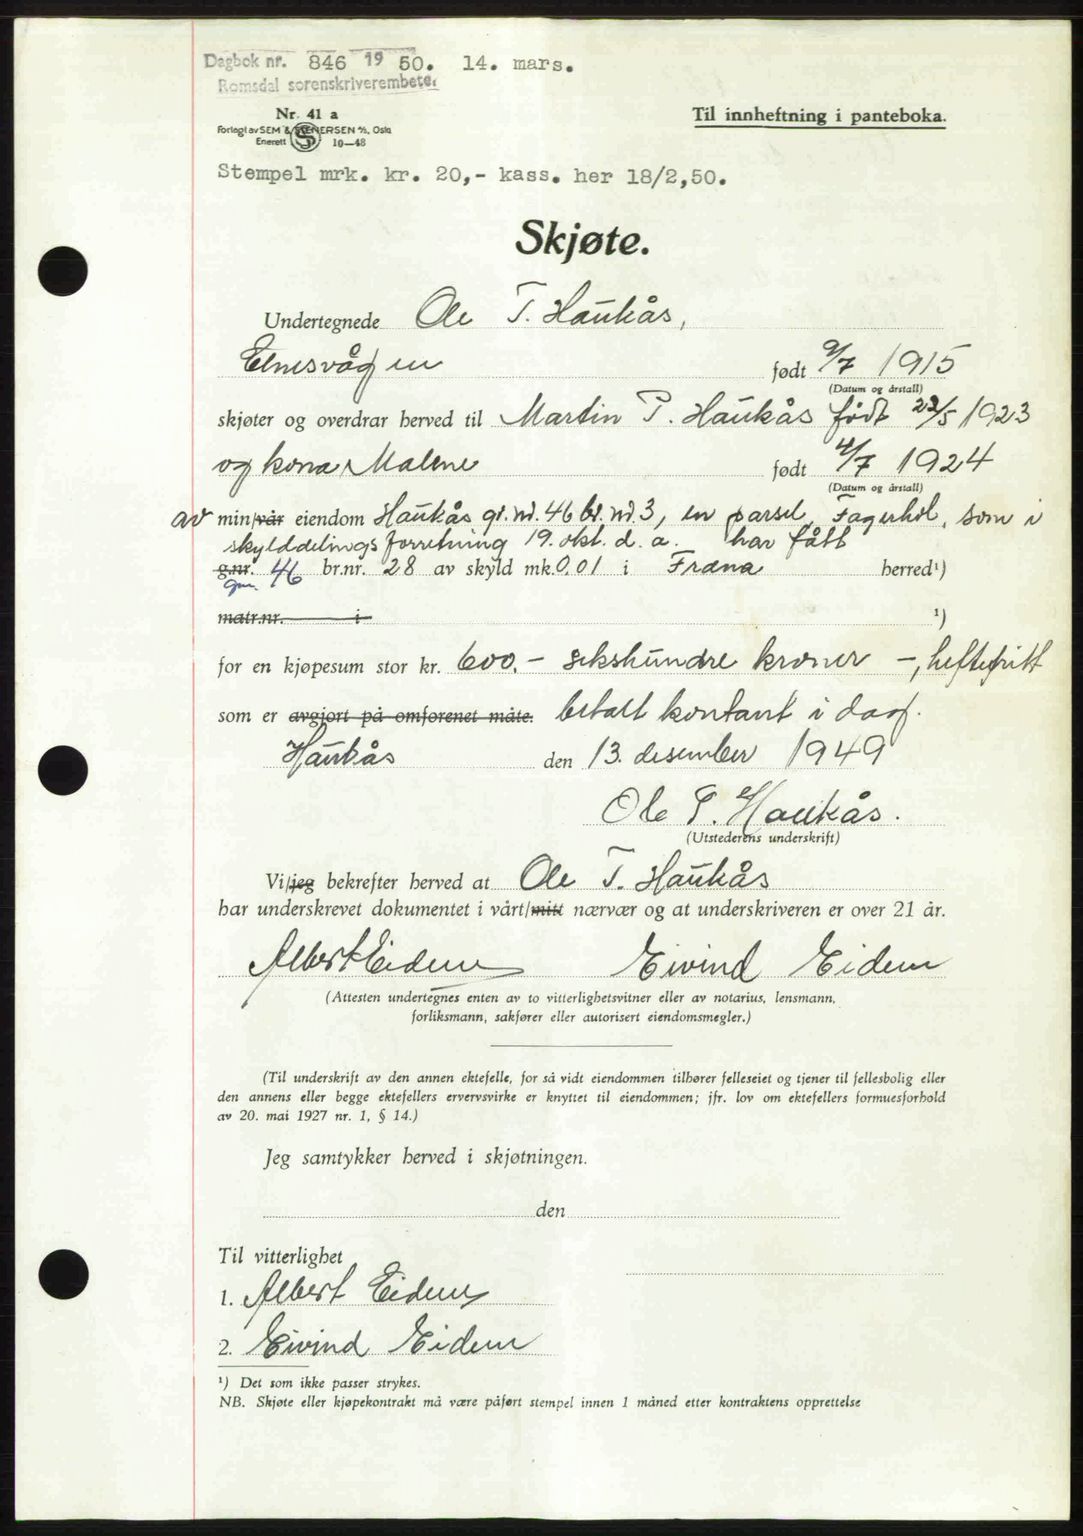 Dagbok nr. 846 19 50. 14. mars.
Romsdal sorenskriverembete.
Nr. 41 a
Til innheftning i panteboka.
Forlagt av SEM & STENERSEN A/S, Oslo
Enerett 10—48
Stempel mrk. kr. 20,- kass. her 18/2,50.
Skjøte.
Undertegnede Ole T. Haukås,
Elnesvågen født 9/7 1915
(Datum og årstall)
skjøter og overdrar herved til Martin P. Haukås født 22/5 1923
og kona Malene født 4/7 1924
(Datum og årstall)
av min/vår eiendom Haukås gr. nr. 46 br. nr. 3, en parsel, Fagerhol, som i
skylddelingsforretning 19. okt. d. a. har fått
g.nr. 46 br.nr. 28 av skyld mk. 0.01 i Fræna herred¹)
gnr.
matr.nr. i ¹)
for en kjøpesum stor kr. 600.- sekshundre kroner -, heftefritt
som er avgjort på omforenet måte. betalt kontant i dag.
Haukås den 13. desember 1949
Ole T. Haukås.
(Utstederens underskrift)
Vi/jeg bekrefter herved at Ole T. Haukås
har underskrevet dokumentet i vårt/mitt nærvær og at underskriveren er over 21 år.
Albert Eidem Eivind Eidem
(Attesten undertegnes enten av to vitterlighetsvitner eller av notarius, lensmann,
forliksmann, sakfører eller autorisert eiendomsmegler.)
(Til underskrift av den annen ektefelle, for så vidt eiendommen tilhører felleseiet og tjener til fellesbolig eller
den annens eller begge ektefellers ervervsvirke er knyttet til eiendommen; jfr. lov om ektefellers formuesforhold
av 20. mai 1927 nr. 1, § 14.)
Jeg samtykker herved i skjøtningen.
den
Til vitterlighet
1. Albert Eidem
2. Eivind Eidem
¹) Det som ikke passer strykes.
NB. Skjøte eller kjøpekontrakt må være påført stempel innen 1 måned etter kontraktens opprettelse